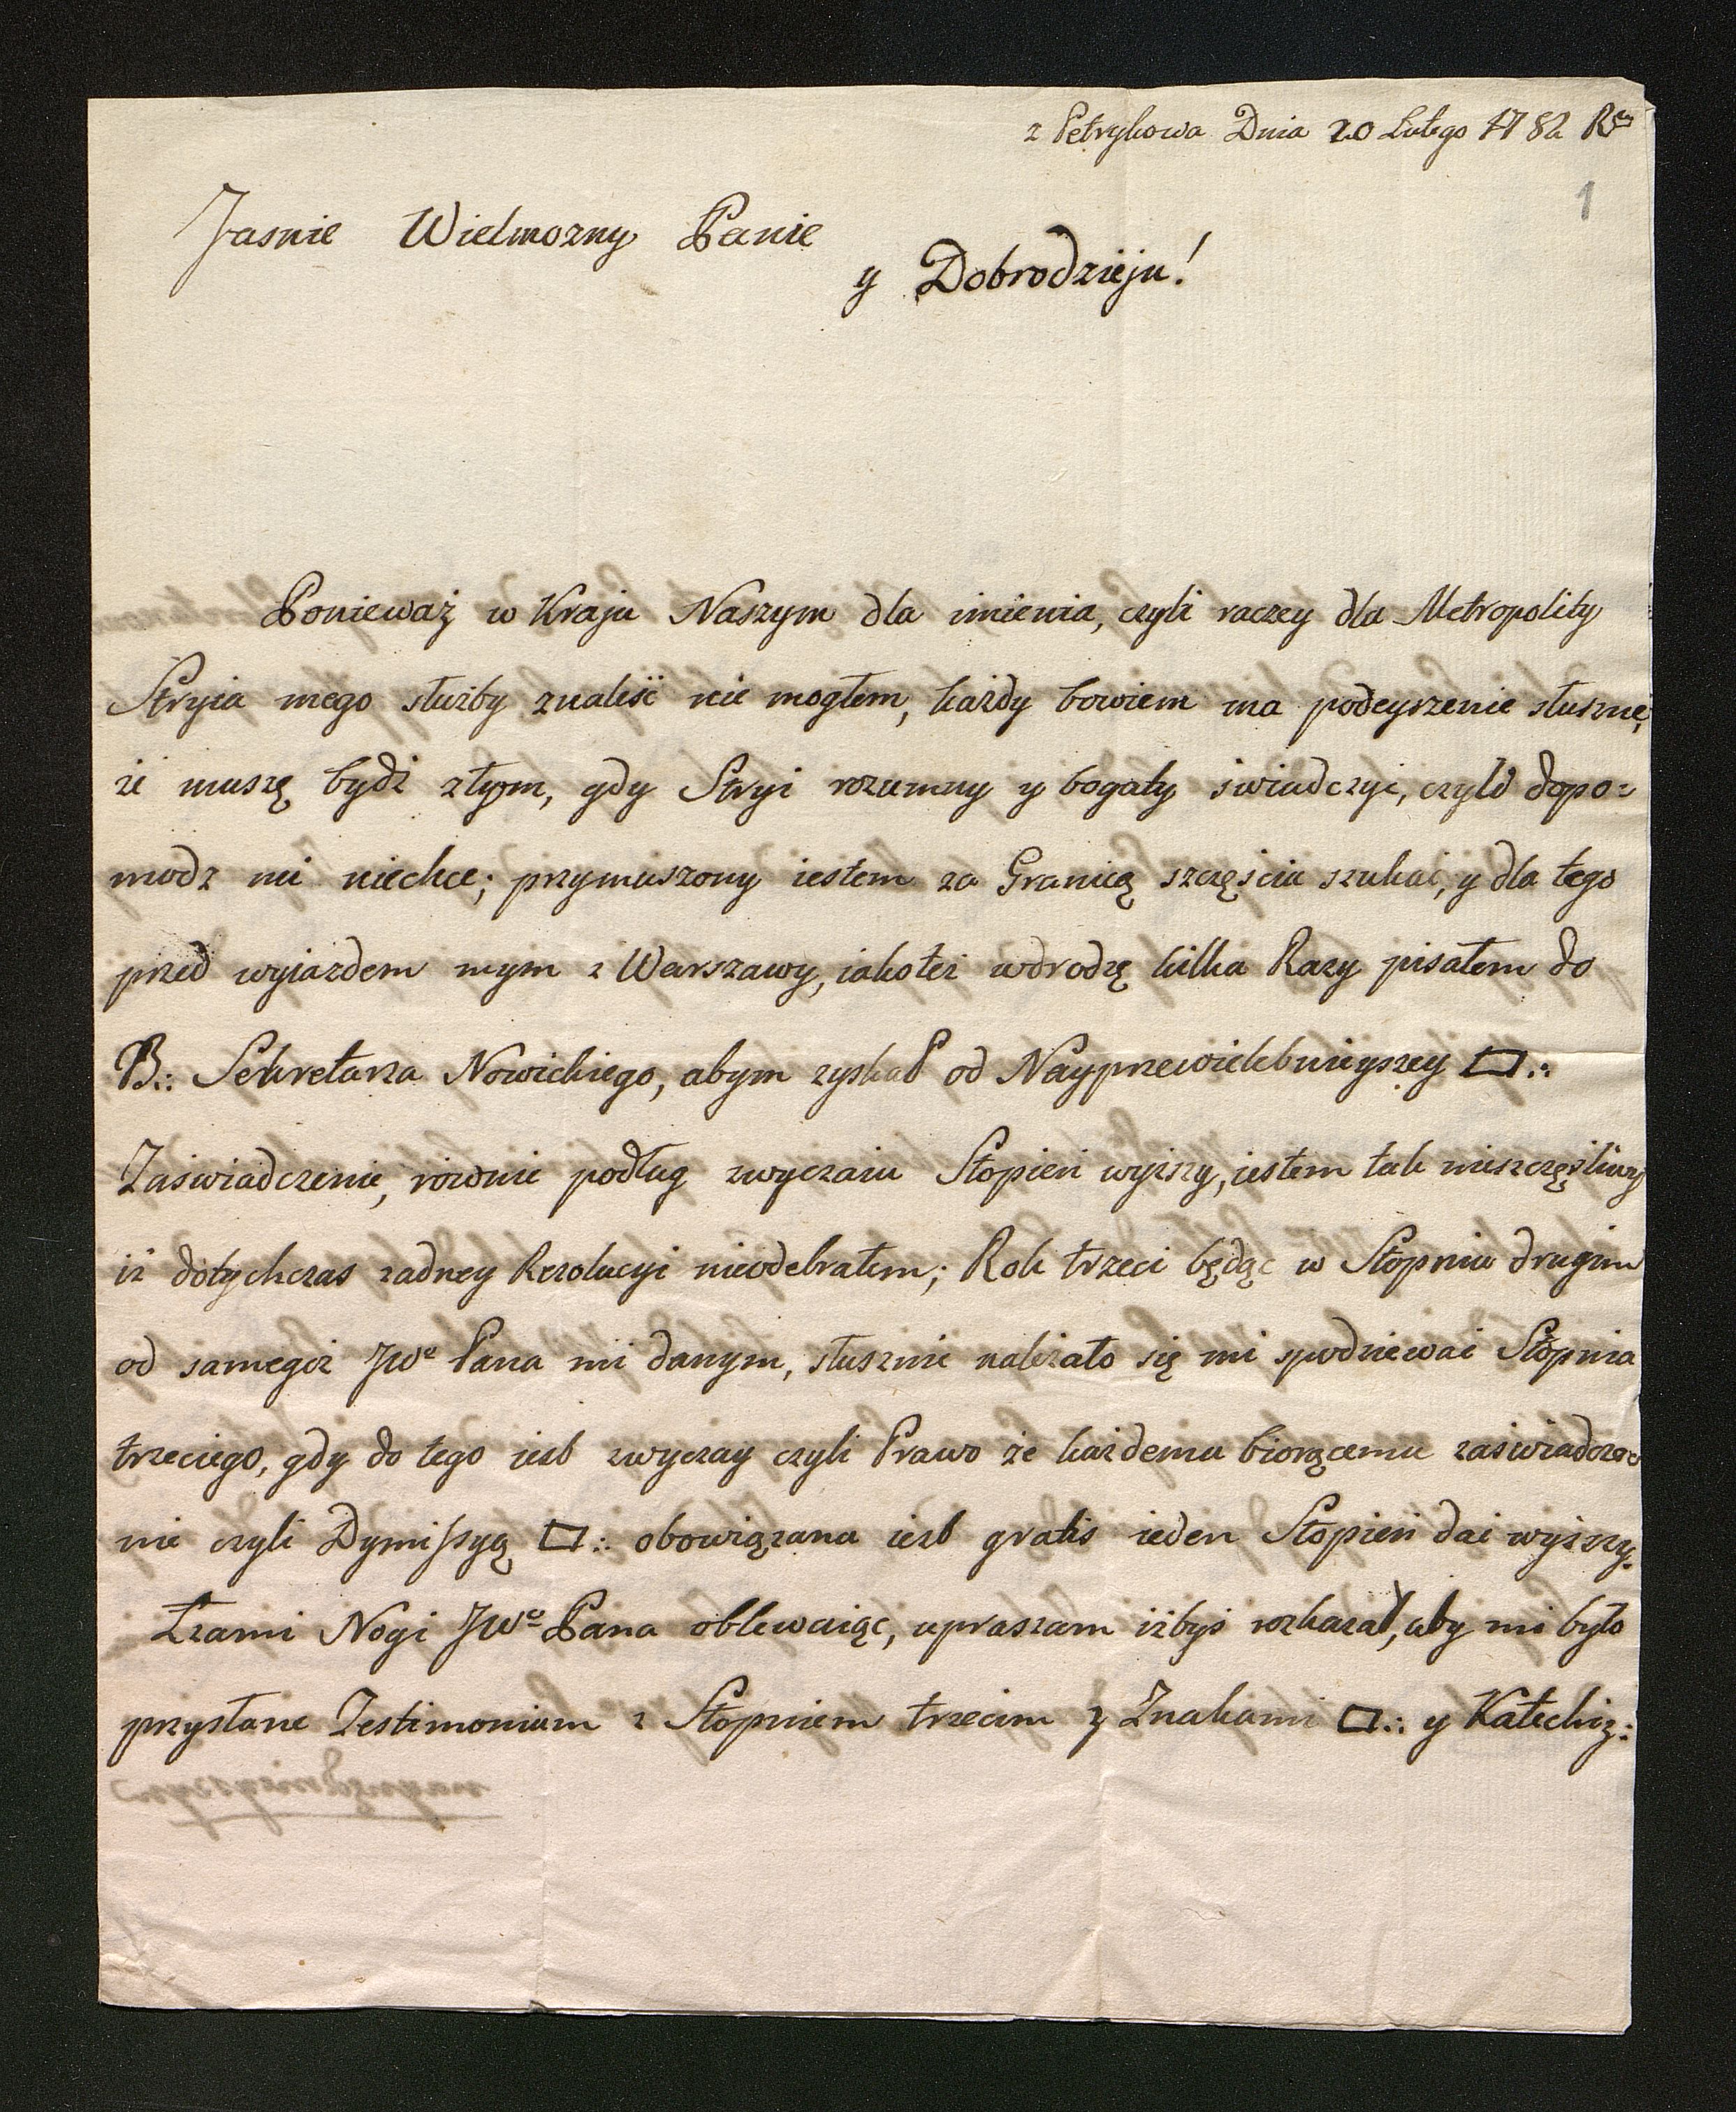 z Petrykowa Dnia 20 Lutego 1782 Ru
1
Jasnie Wielmozny Panie
y Dobrodzieju!
Ponieważ w Kraju Naszym dla imienia, czyli raczey dla Metropolity
Stryia mego służby znaliść nie mogłem, każdy bowiem ma podeyszenie słuszne,
że muszę bydź złym, gdy Stryi rozumny y bogaty świadczyć, czyli dopo=
modz mi niechce; przymuszony iestem za Granicą szczęścia szukać, y dla tego
przed wyiazdem mym z Warszawy, iakoteż wdrodzę kilka Razy pisałem do
B.: Sekretarza Nowickiego, abym zyskał od Nayprzewielebnieyszey □.:
Zaświadczenie, rownie podług zwyczaiu Stopień wyższy, iestem tak nieszczęśliwy
iż dotychczas żadney Rezolucyi nieodebrałem; Rok trzeci będąc w Stopniu drugim
od samegoż JWo Pana mi danym, słusznie należało się mi spodziewać Stopnia
trzeciego, gdy do tego iest zwyczay czyli Prawo że każdemu biorącemu zaświadcze=
nie czyli Dymissyą □.: obowiązana iest gratis ieden Stopień dać wyższy.
Łzami Nogi JWo Pana oblewaiąc, upraszam iżbyś rozkazał, aby mi było
przysłane Testimonium z Stopniem trzecim z Znakami □.: y Katechiz: